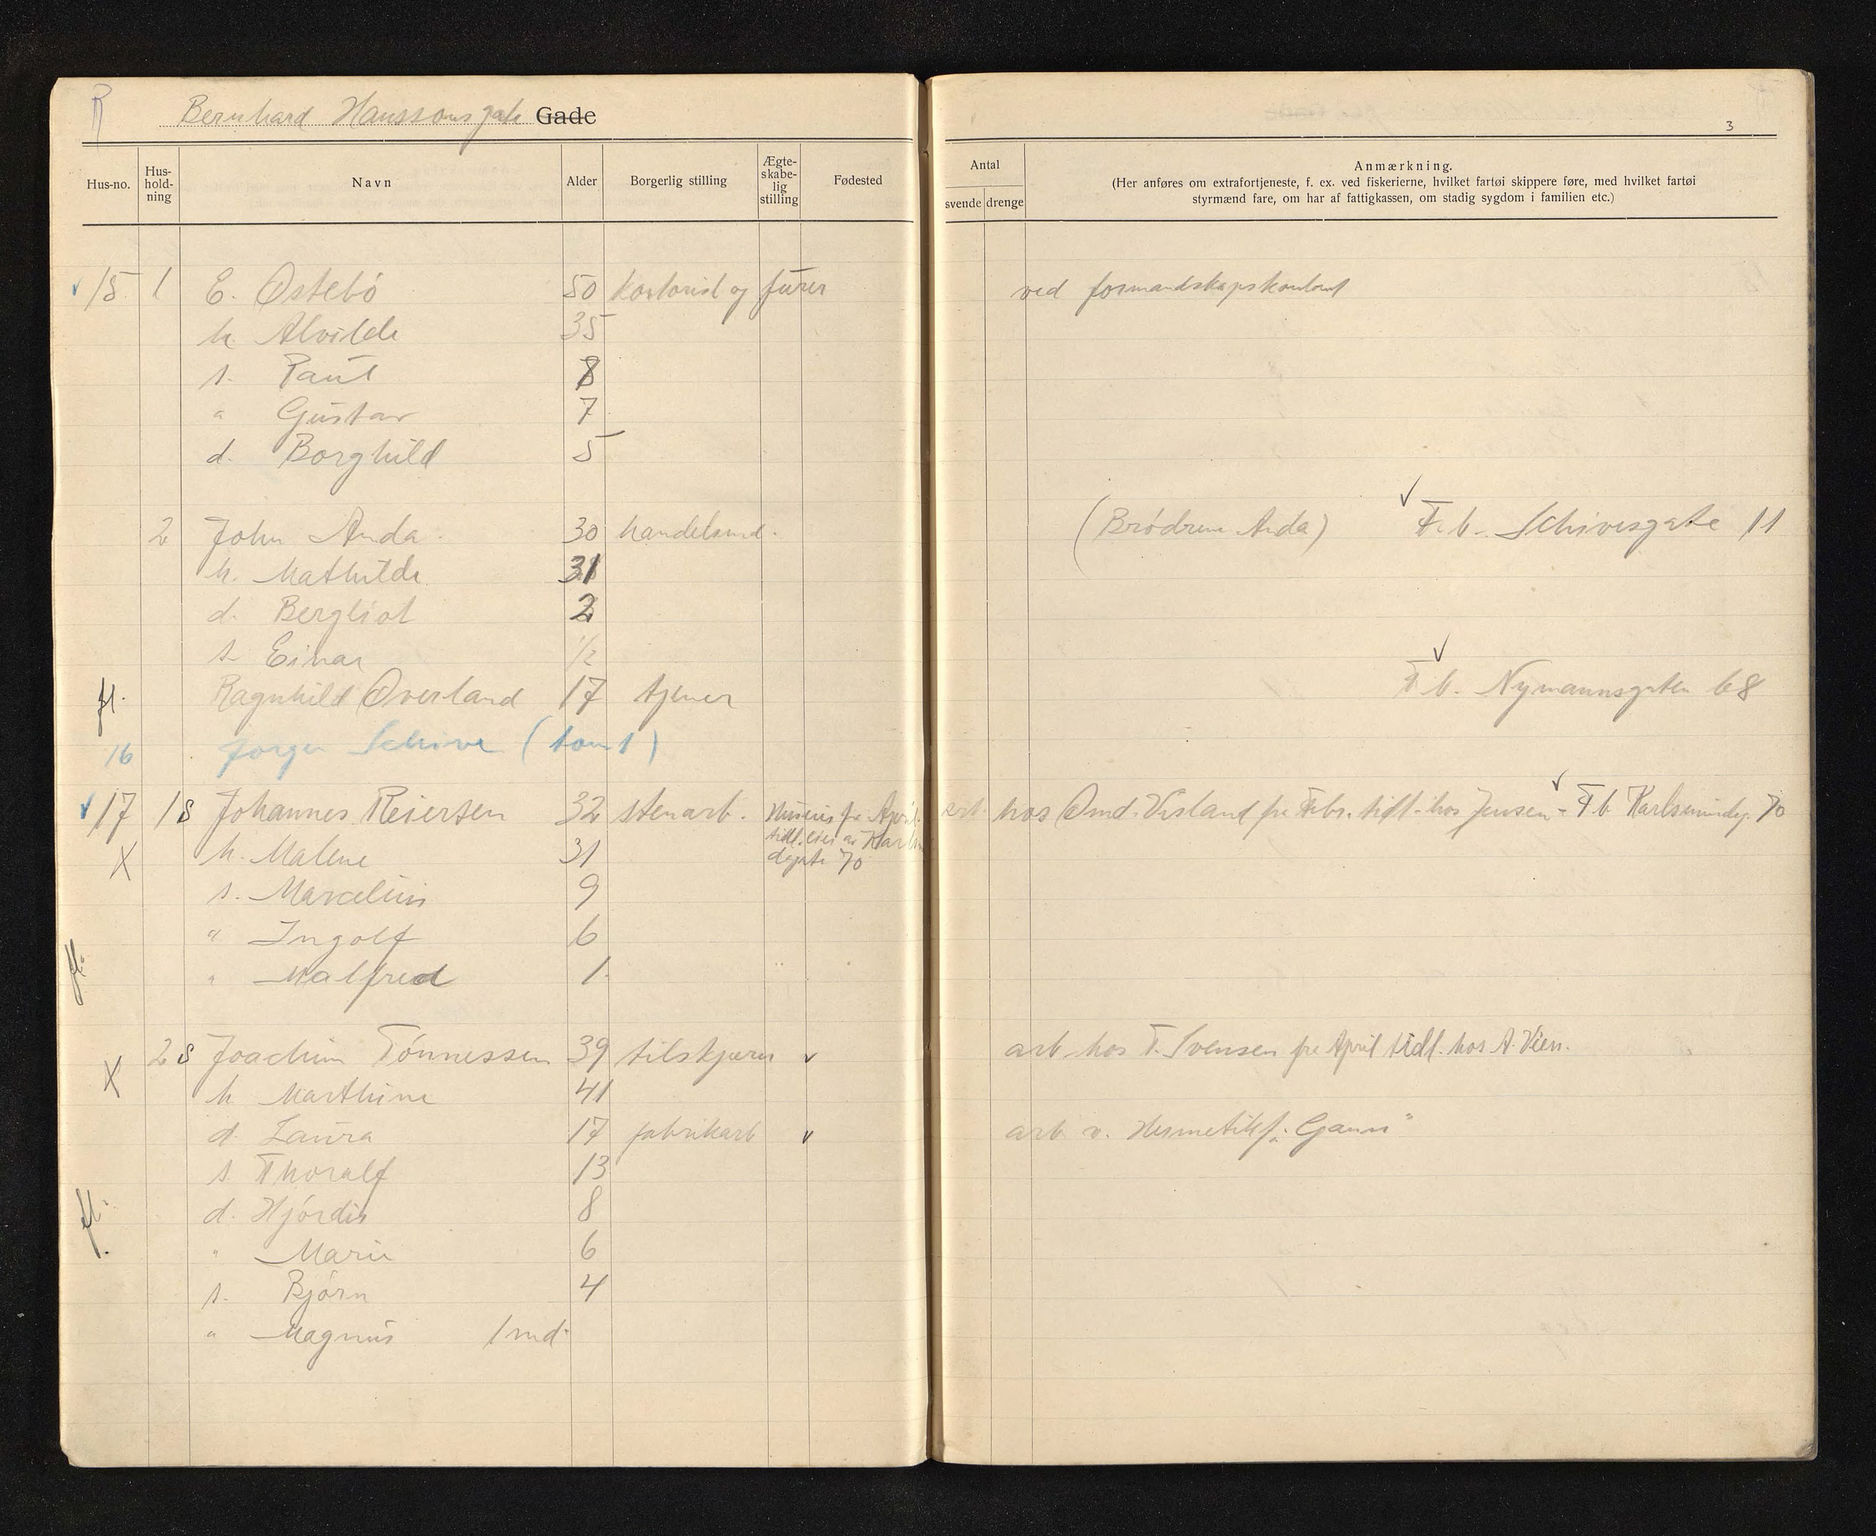 R Bernhard Hanssons gate Gade
3
Hus-no. Hus-hold-ning Navn Alder Borgerlig stilling Ægte-skabe-lig stilling Fødested Antal svende drenge Anmærkning.
(Her anføres om extrafortjeneste, f. ex. ved fiskerierne, hvilket fartøi skippere føre, med hvilket fartøi
styrmænd fare, om har af fattigkassen, om stadig sygdom i familien etc.)
15 1 E. Østebö 50 Kontorist og furer ved formandskapskontoret
h Alvilde 35
s. Paul 8
" Gustav 7
d. Borghild 5
2 John Anda. 30 handelsmd. (Brödrene Anda) F. b. Schivesgate 11
h. Mathilde 31
d. Bergliot 2
s Einar 1/2
fl. Ragnhild Överland 17 tjener F. b. Nymannsgaten 68
16 Jörgen Schive (tomt)
17 1 S Johannes Reiersen 32 stenarb. Huseier fra April. arb. hos Omd. Visland fra Febr. tidl. hos Jensen - F. b. Karlsmindeg. 70
tidl. eier av Karlsmin
X h. Malene 31 degate 70
s. Marcelius 9
" Ingolf 6
fl. " Malfred 1.
2 S Joachim Tönnessen 39 tilskjærer v arb. hos T. Svensen fra April tidl. hos A. Vien.
X h Marthine 41
d. Laura 17 fabrikarb v arb v. Hermetikf. "Gann"
s Thoralf 13
fl. d. Hjördis 8
" Marie 6
s. Björn 4
" Magnus 1 md.